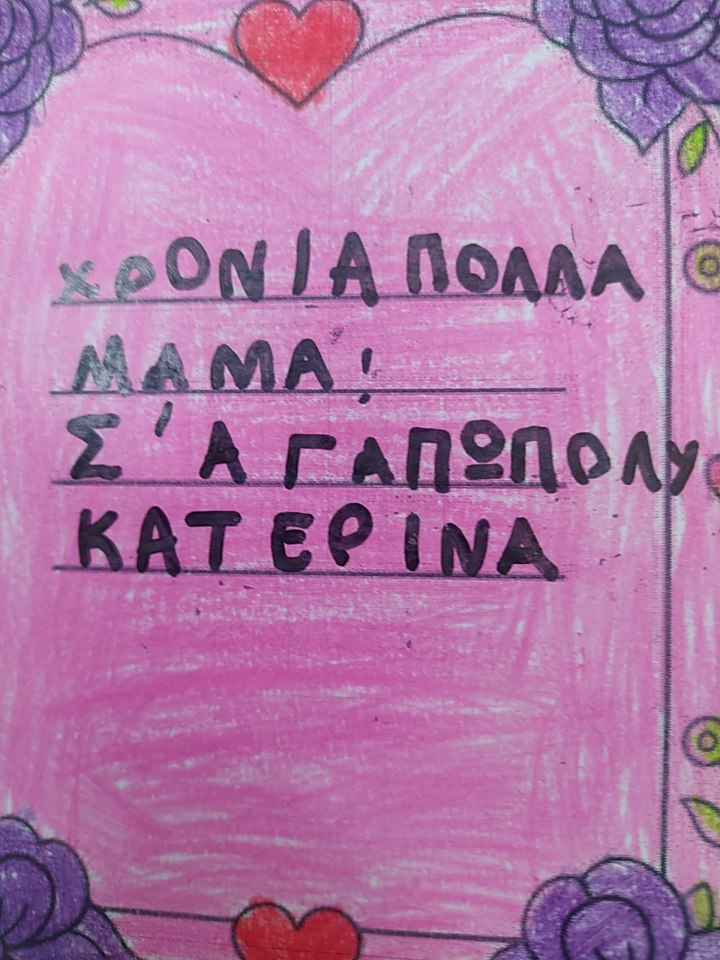 ΧΡΟΝΙΑ ΠΟΛΛΑ
ΜΑΜΑ!
Σ'ΑΓΑΠΩ ΠΟΛΥ
ΚΑΤΕΡΙΝΑ